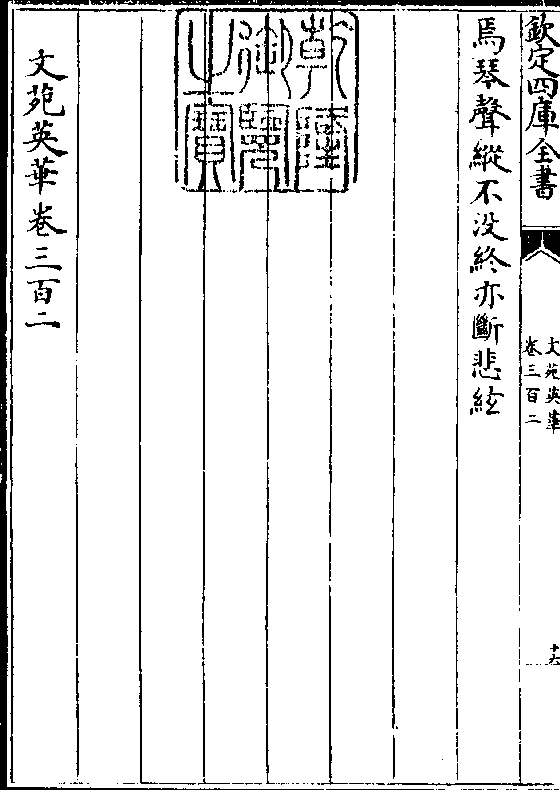 欽定四庫全書
文苑英華
卷三百二
十六
焉琴聲縱不没終亦斷悲絃
乾隆御覽之寶
文苑英華卷三百二